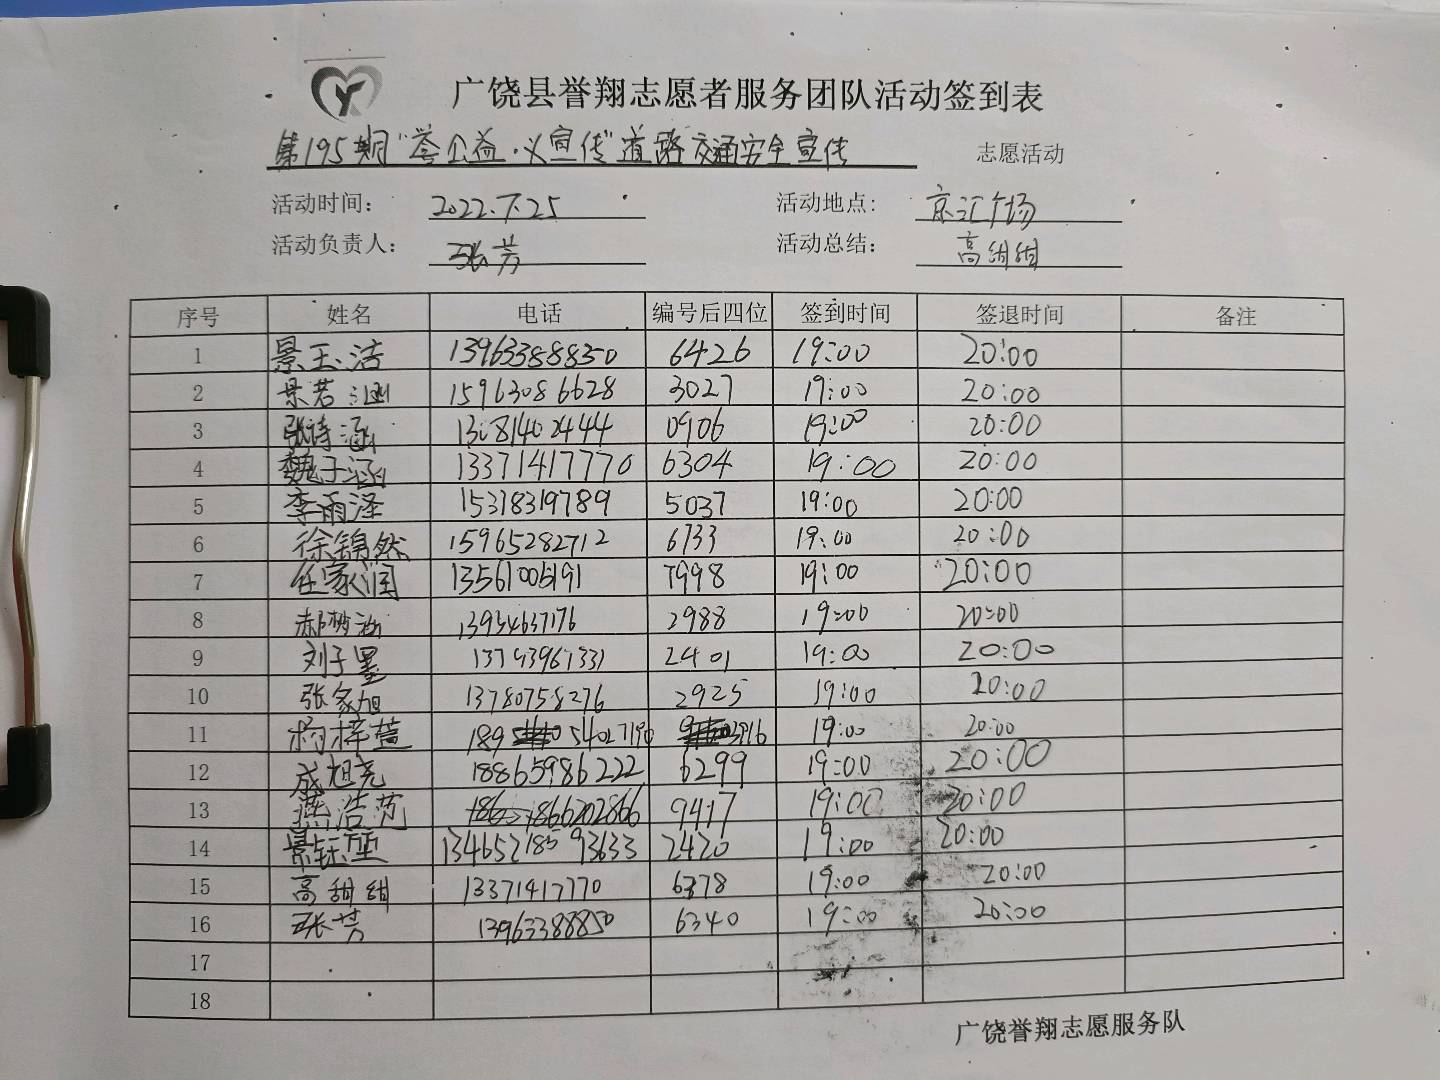 广饶县誉翔志愿者服务团队活动签到表
第195期"誉公益·义宣传"道路交通安全宣传 志愿活动
活动时间: 2022.7.25 活动地点: 京汇广场
活动负责人: 张芳 活动总结: 高甜甜
序号 姓名 电话 编号后四位 签到时间 签退时间 备注
1 景玉洁 13963388850 6426 19:00 20:00
2 景若涵 15963086628 3027 19:00 20:00
3 张诗涵 13081402444 0906 19:00 20:00
4 魏子涵 13371417770 6304 19:00 20:00
5 李雨泽 15378319789 5037 19:00 20:00
6 徐锦然 15965282712 6733 19:00 20:00
7 任家润 13561006191 7998 19:00 20:00
8 郝梦涵 13954637176 2988 19:00 20:00
9 刘子墨 13793961331 2401 19:00 20:00
10 张家旭 13780758276 2925 19:00 20:00
11 杨梓萱 19:00 20:00
12 成旭尧 18865986222 6299 19:00 20:00
13 燕浩范 1866202866 9417 19:00 20:00
14 景钰 2420 19:00 20:00
15 高甜甜 13371417770 6378 19:00 20:00
16 张芳 13963388850 6340 19:00 20:00
17
18
广饶誉翔志愿服务队